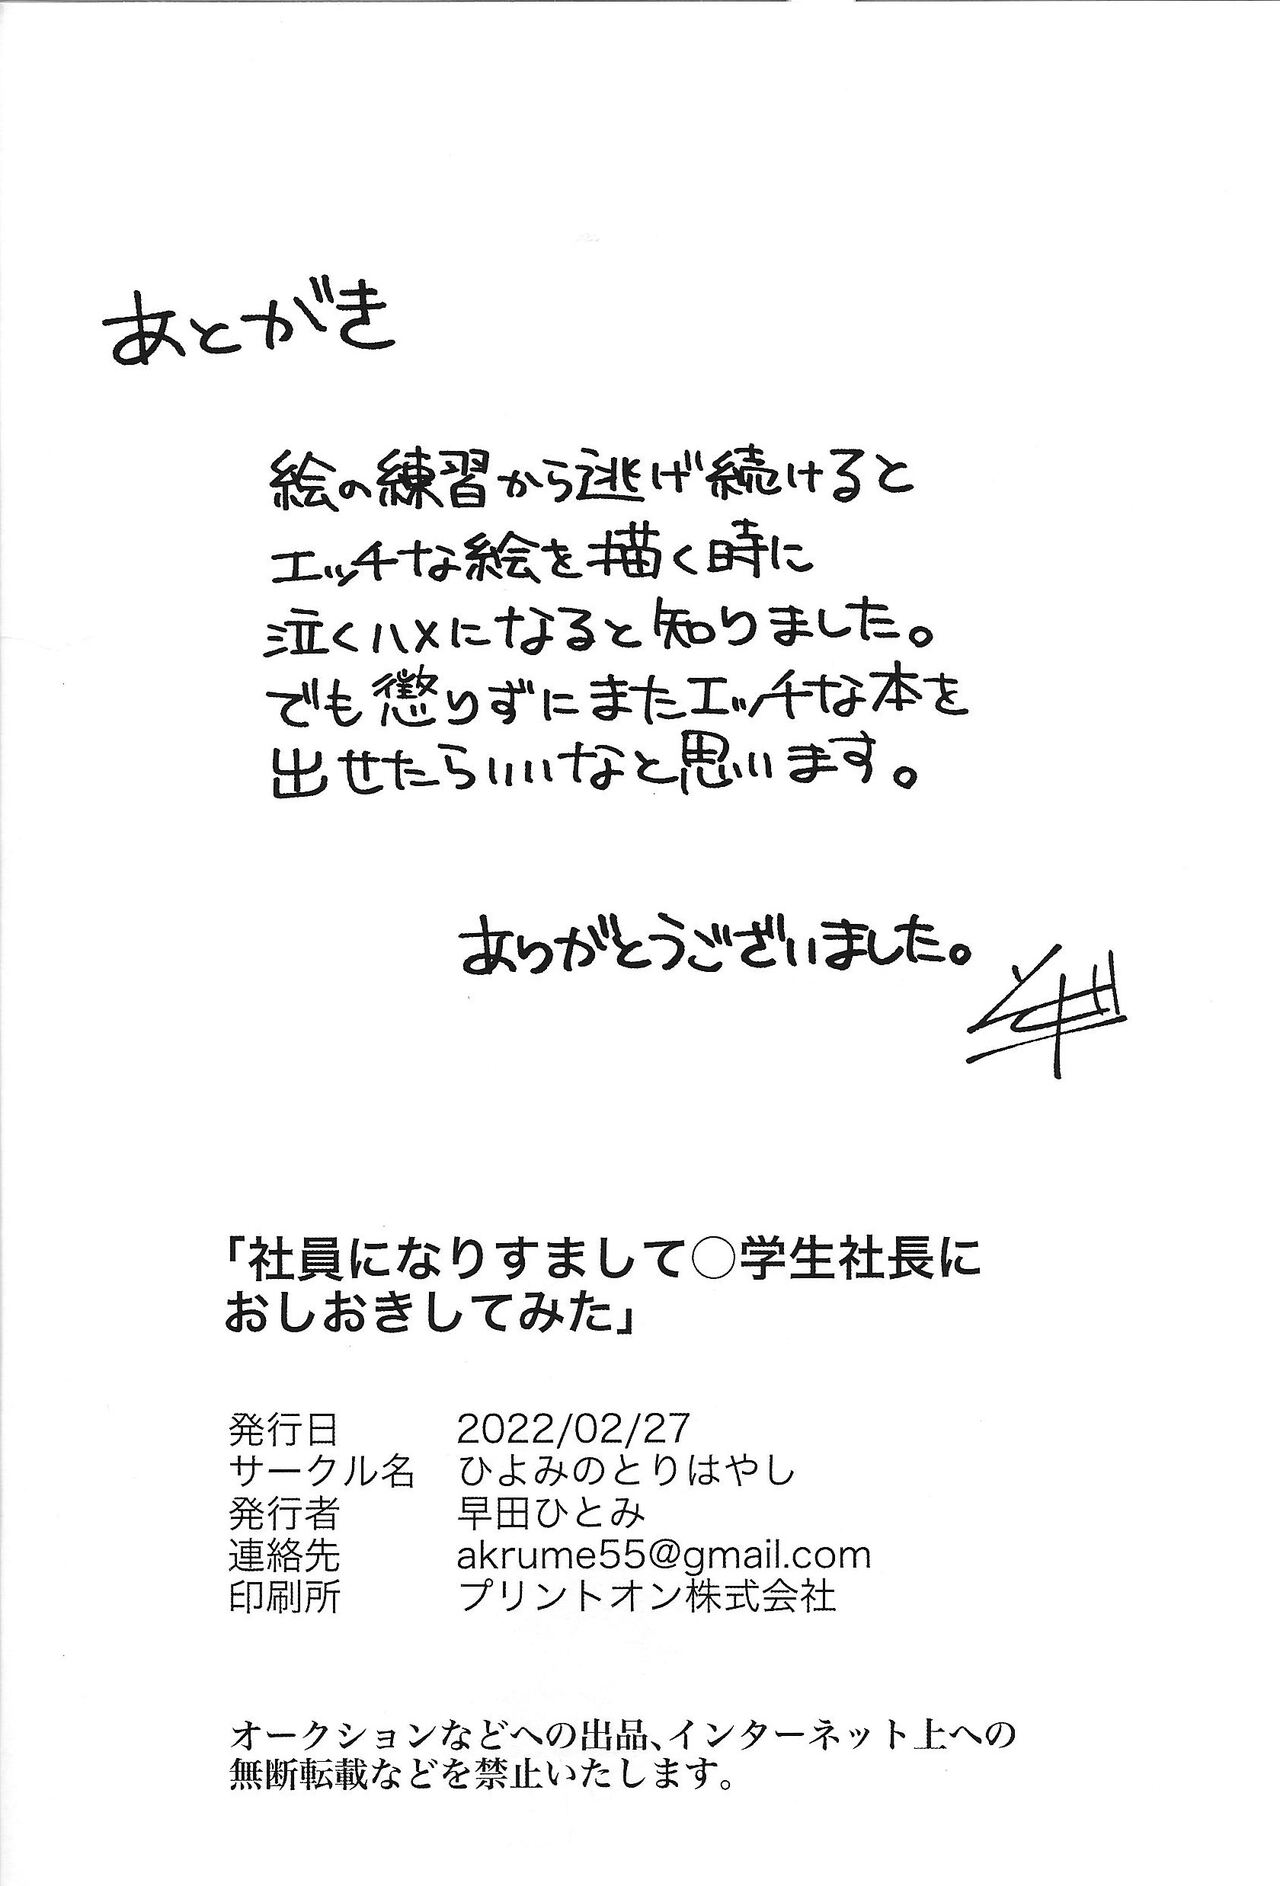 あとがき
絵の練習から逃げ続けると
エッチな絵を描く時に
泣くハメになると知りました。
でも懲りずにまたエッチな本を
出せたらいいなと思います。
ありがとうございました。
「社員になりすまして◯学生社長に
おしおきしてみた」
発行日 2022/02/27
サークル名 ひよみのとりはやし
発行者 早田ひとみ
連絡先 akrume55@gmail.com
印刷所 プリントオン株式会社
オークションなどへの出品、インターネット上への
無断転載などを禁止いたします。